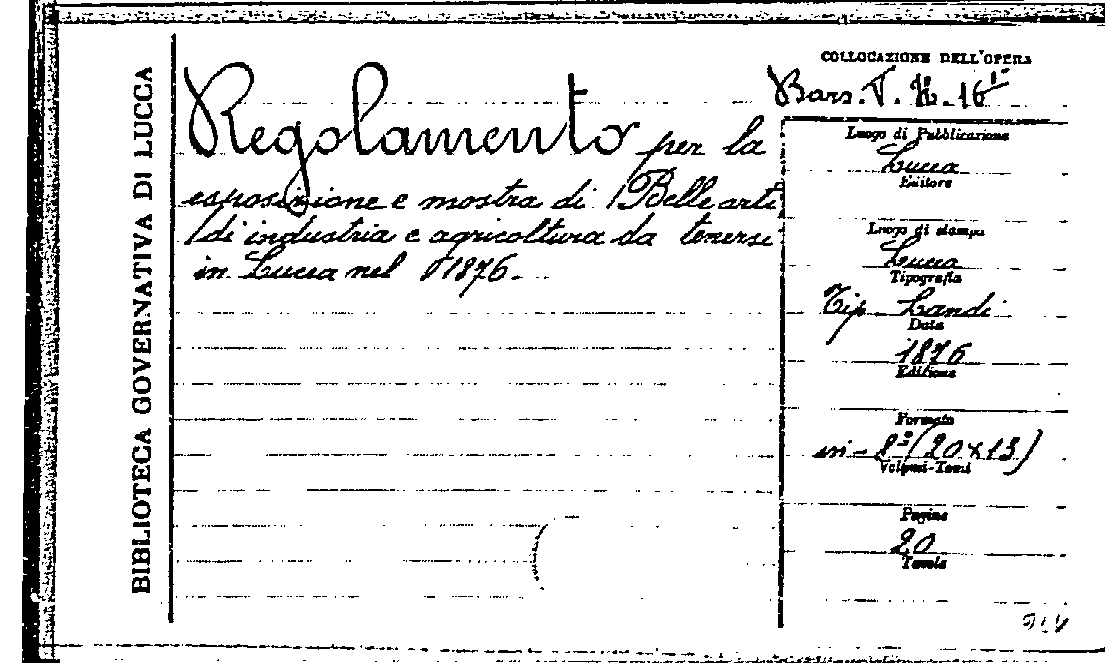 BIBLIOTECA GOVERNATIVA DI LUCCA
Regolamento per la
esposizione e mostra di Belle arti
di industria e agricoltura da tenersi
in Lucca nel 1876.
COLLOCAZIONE DELL'OPERA
Bars. T.
Luogo di Pubblicazione
Lucca
Editore
Luogo di stampa
Lucca
Tipografia
Tip. Landi
Data
1876
Edizione
Formato
in-8º (20x13)
Volumi-Tomi
Pagine
20
Tavole